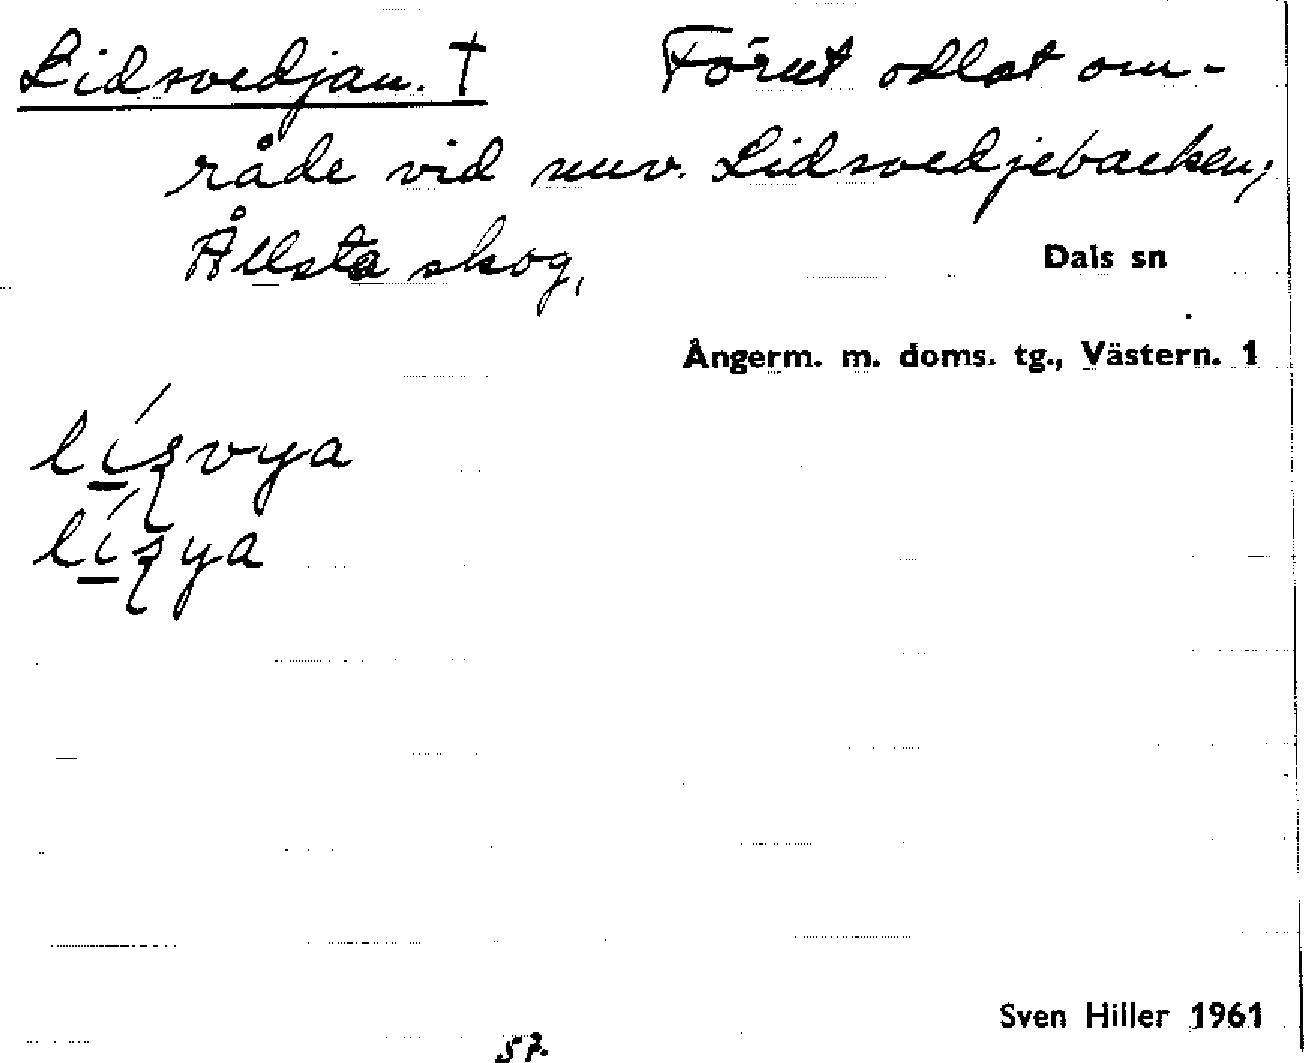 Lidsvedjan. † Förut odlat om-
råde vid nuv. Lidsvedjebacken,
Ållsta skog,
Dals sn
Ångerm. m. doms. tg., Västern. 1
Sven Hiller 1961
57.